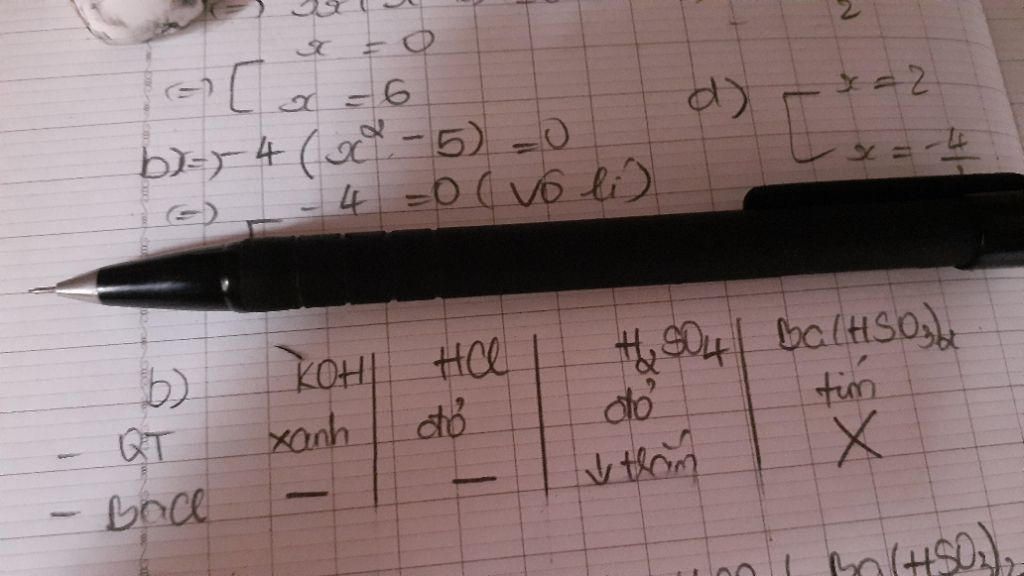 x = 0
(=) [ x = 6
d) [ x = 2
x = -4
b) (=) -4 (x² - 5) = 0
(=) [ -4 = 0 (vô lí)
b) KOH | HCl | H₂SO₄ | Ba(HSO₃)₂
- QT xanh | đỏ | đỏ | tím
- BaCl — | — | ↓ trắng | X
Ba(HSO₃)₂